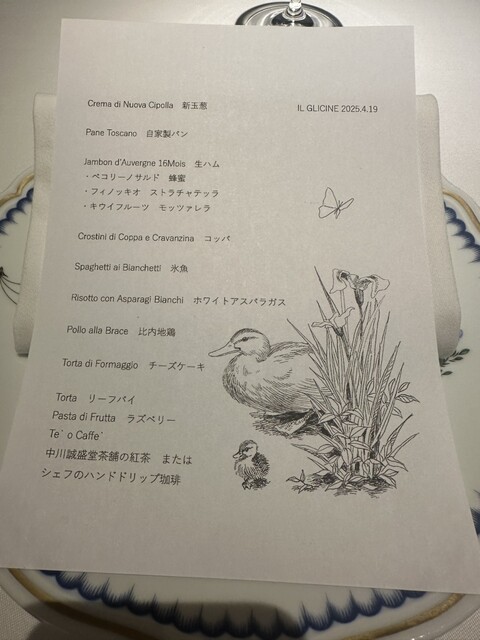 IL GLICINE 2025.4.19
Crema di Nuova Cipolla 新玉葱
Pane Toscano 自家製パン
Jambon d'Auvergne 16Mois 生ハム
・ペコリーノサルド 蜂蜜
・フィノッキオ ストラチャテッラ
・キウイフルーツ モッツァレラ
Crostini di Coppa e Cravanzina コッパ
Spaghetti ai Bianchetti 氷魚
Risotto con Asparagi Bianchi ホワイトアスパラガス
Pollo alla Brace 比内地鶏
Torta di Formaggio チーズケーキ
Torta リーフパイ
Pasta di Frutta ラズベリー
Te` o Caffe`
中川誠盛堂茶舗の紅茶 または
シェフのハンドドリップ珈琲